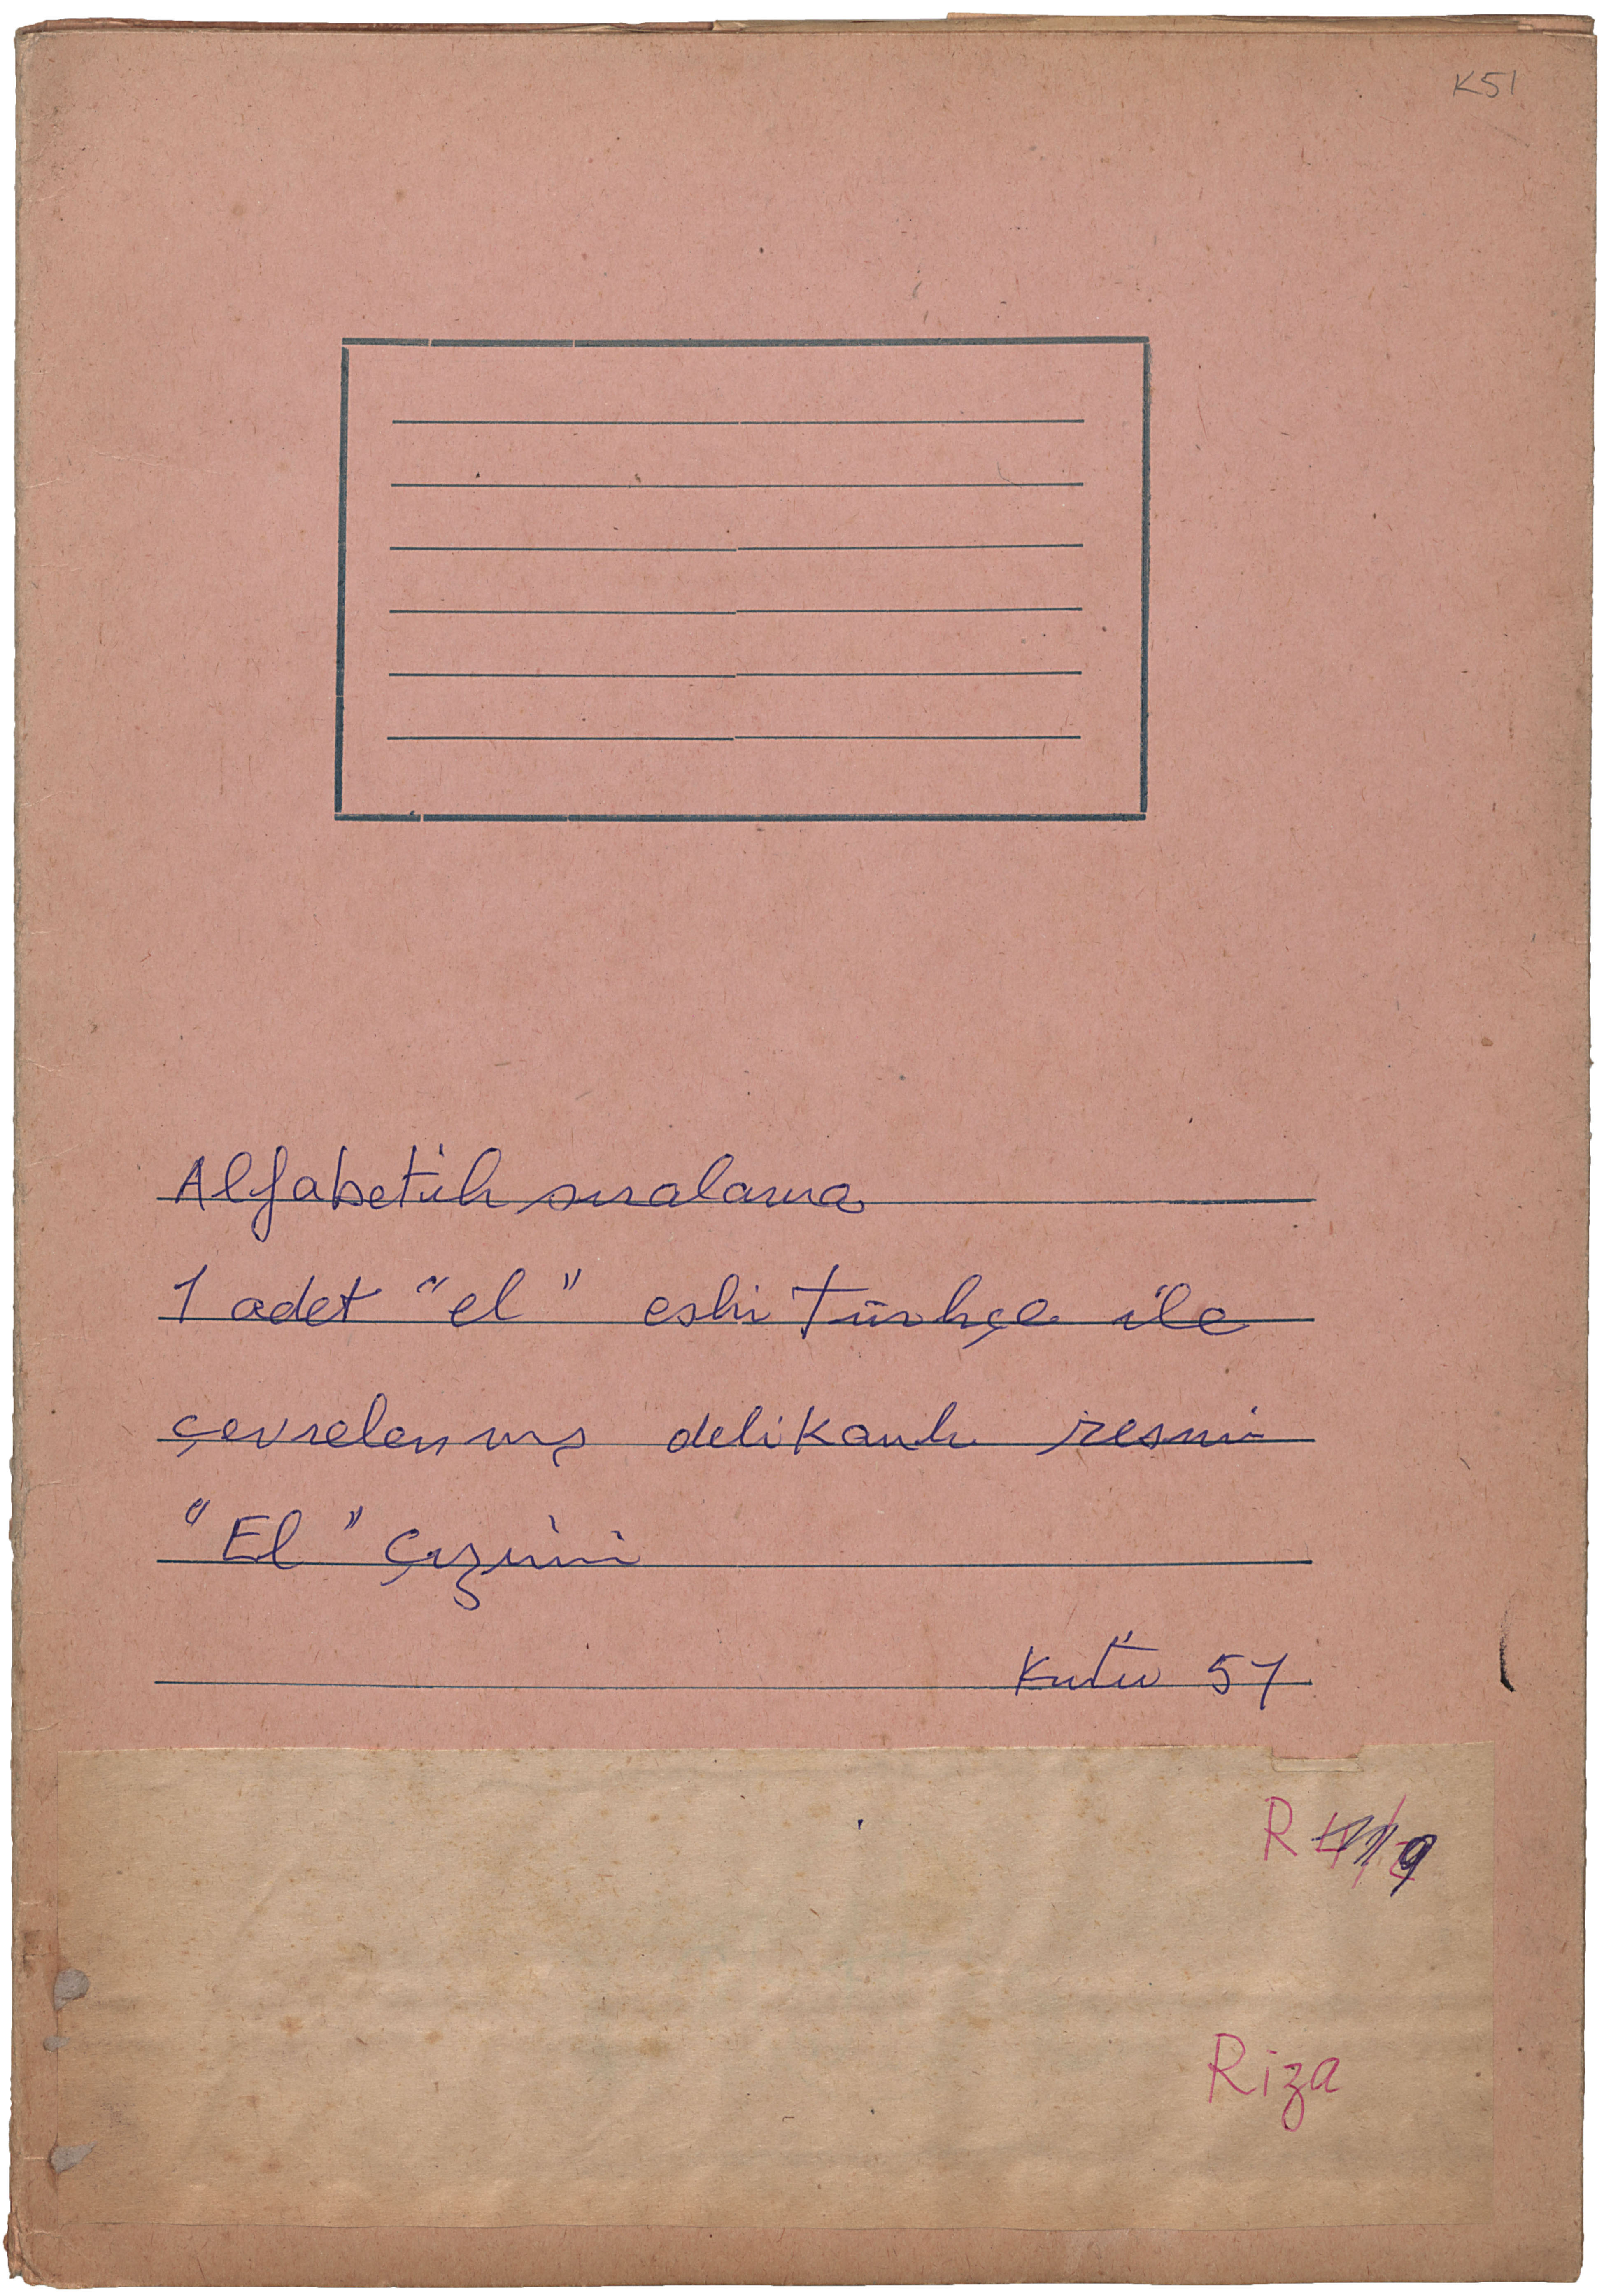 K51
Alfabetik sıralama
1 adet "el" eski Türkçe ile
çevrelenmiş delikanlı resmi
"El" Çizimi
Kutu 51
R
Riza